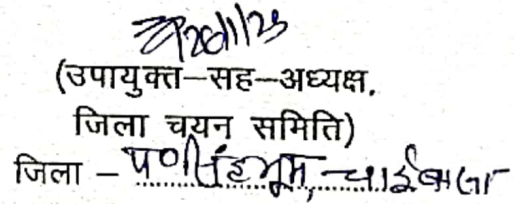 20/11/23
(उपायुक्त–सह–अध्यक्ष.
जिला चयन समिति)
जिला – प०सिंहभूम, चाईबासा